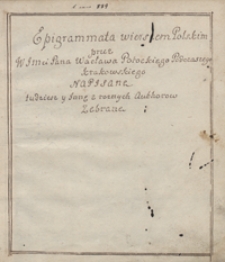 Epigrammata wierszem Polskim
przez
W Imci Pana Wacława Potockiego Podczaszego
Krakowskiego
Napisane
tudziesz y Insze z roznych Authorow
Zebrane